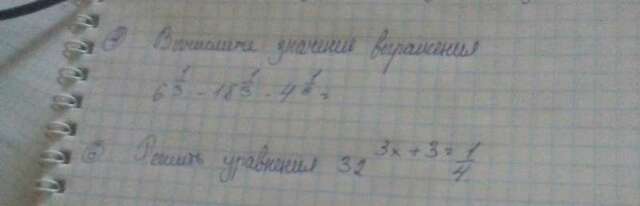 ② Вычислите значение выражения
6^{1/3} - 18^{1/3} · 4^{1/2} =
③ Решить уравнения 32^{3x+3} = 1/4